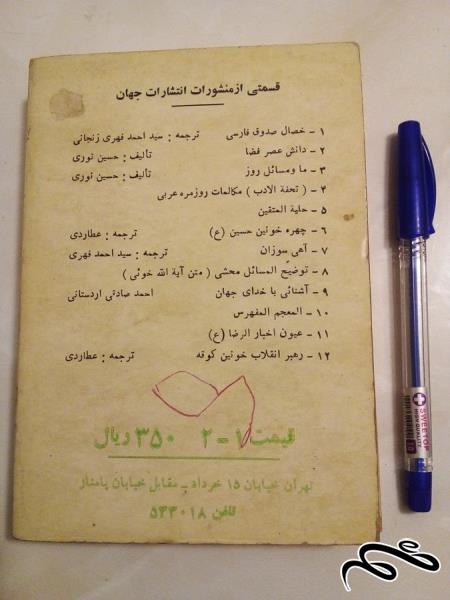 قسمتی از منشورات انتشارات جهان
۱ - خصال صدوق فارسی ترجمه : سید احمد فهری زنجانی
۲ - دانش عصر فضا تألیف : حسین نوری
۳ - ما ومسائل روز تألیف : حسین نوری
۴ - ( تحفة الادب ) مکالمات روزمره عربی
۵ - حلیة المتقین
۶ - چهره خونین حسین (ع) ترجمه : عطاردی
۷ - آهی سوزان ترجمه : سید احمد فهری
۸ - توضیح المسائل محشی ( متن آیة الله خوئی )
۹ - آشنائی با خدای جهان احمد صادقی اردستانی
۱۰ - المعجم المفهرس
۱۱ - عیون اخبار الرضا (ع)
۱۲ - رهبر انقلاب خونین کوفه ترجمه : عطاردی
قیمت ۱ = ۲ ۳۵۰ ریال
تهران خیابان ۱۵ خرداد - مقابل خیابان پامنار
تلفن ۵۳۳۰۱۸
SWEETOP
HIGH QUALITY